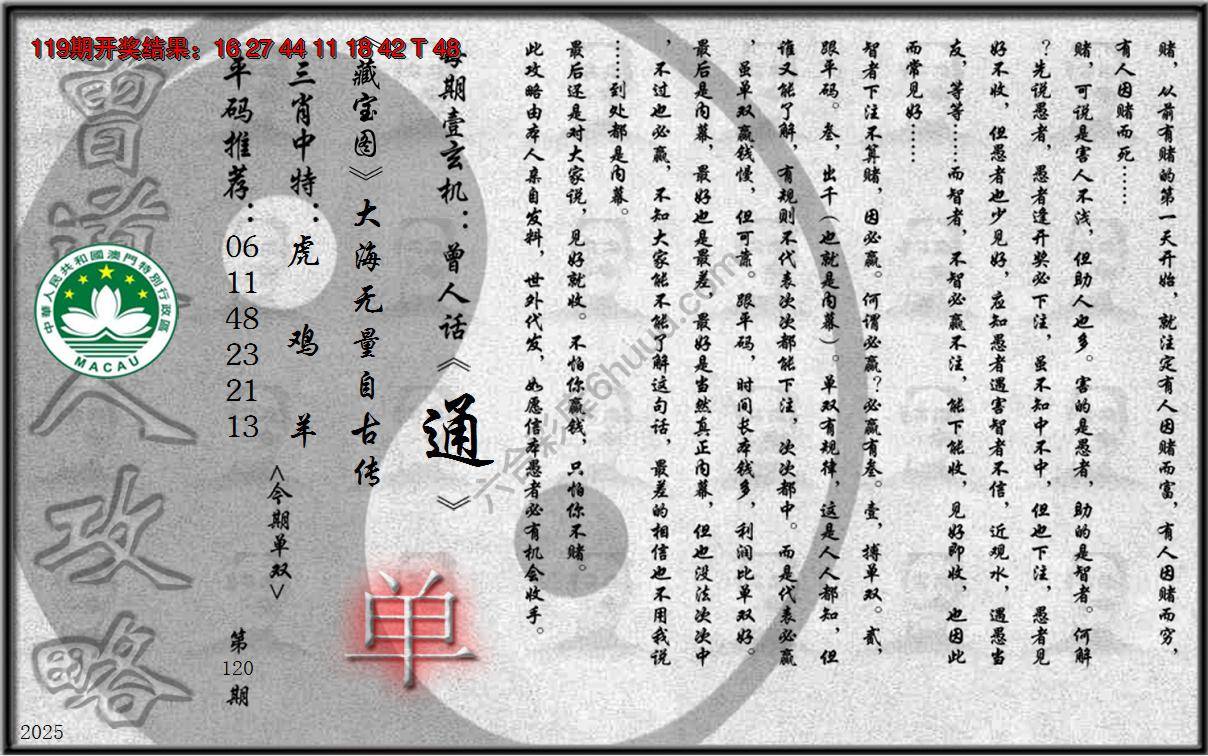 119期开奖结果：16 27 44 11 18 42 T 48
赌，从前有赌的第一天开始，就注定有人因赌而富，有人因赌而穷，
有人因赌而死……
赌，可说是害人不浅，但助人也多。害的是愚者，助的是智者。何解
？先说愚者，愚者逢开奖必下注，虽不知中不中，但也下注，愚者见
好不收，但愚者也少见好，应知愚者遇害智者不信，近观水，遇愚当
友，等等……而智者，不智必赢不注，能下能收，见好即收，也因此
而常见好……
智者下注不算赌，因必赢。何谓必赢？必赢有叁。壹，搏单双。贰，
跟平码。叁，出千（也就是内幕）。单双有规律，这是人人都知，但
谁又能了解，有规则不代表次次都能下注，次次都中。而是代表必赢
，虽单双赢钱慢，但可靠。跟平码，时间长本钱多，利润比单双好。
最后是内幕，最好也是最差，最好是当然真正内幕，但也没法次次中
，不过也必赢，不知大家能不能了解这句话，最差的相信也不用我说
……到处都是内幕。
最后还是对大家说，见好就收。不怕你赢钱，只怕你不赌。
此攻略由本人亲自发料，世外代发，如愿信本愚者必有机会收手。
每期壹玄机：曾人话《通》
《藏宝图》大海无量自古传
单
三肖中特：虎 鸡 羊
<今期单双>
平码推荐：06 11 48 23 21 13
第120期
曾道人攻略
中華人民共和國澳門特別行政區
MACAU
六合彩库6huuu.com
2025